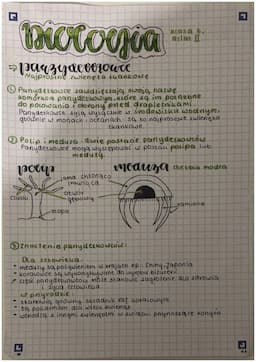 Biologia
klasa 6,
dział II
⇒ parzydełkowce
Najprostsze zwierzęta tkankowe
① Parzydełkowce zawdzięczają swoją nazwę
komórką parzydełkowym, które są im potrzebne
do polowania i obrony przed drapieżnikami.
Parzydełkowce żyją wyłącznie w środowisku wodnym,
głównie w morzach i oceanach, są to najprostsze zwierzęta
tkankowe
② Polip i meduza - różne postacie parzydełkowców
Parzydełkowce mogą występować w postaci polipa lub
meduzy.
polip
meduza
jama chłonąco-
trawiąca
otwór
gębowy
czułki
stopa
ramiona
③ Znaczenie parzydełkowców:
Dla człowieka:
- meduzy są pożywieniem w krajach np. Chiny, Japonia
- koralowce są wykorzystywane do wyrobu biżuterii
- część parzydełkowców może stanowić zagrożenie dla zdrowia
i życia człowieka
w przyrodzie:
- stanowią główny składnik raf koralowych
- są pokarmem dla wielu zwierząt
- wchodzą z innymi zwierzętami w związki przynoszące korzyści